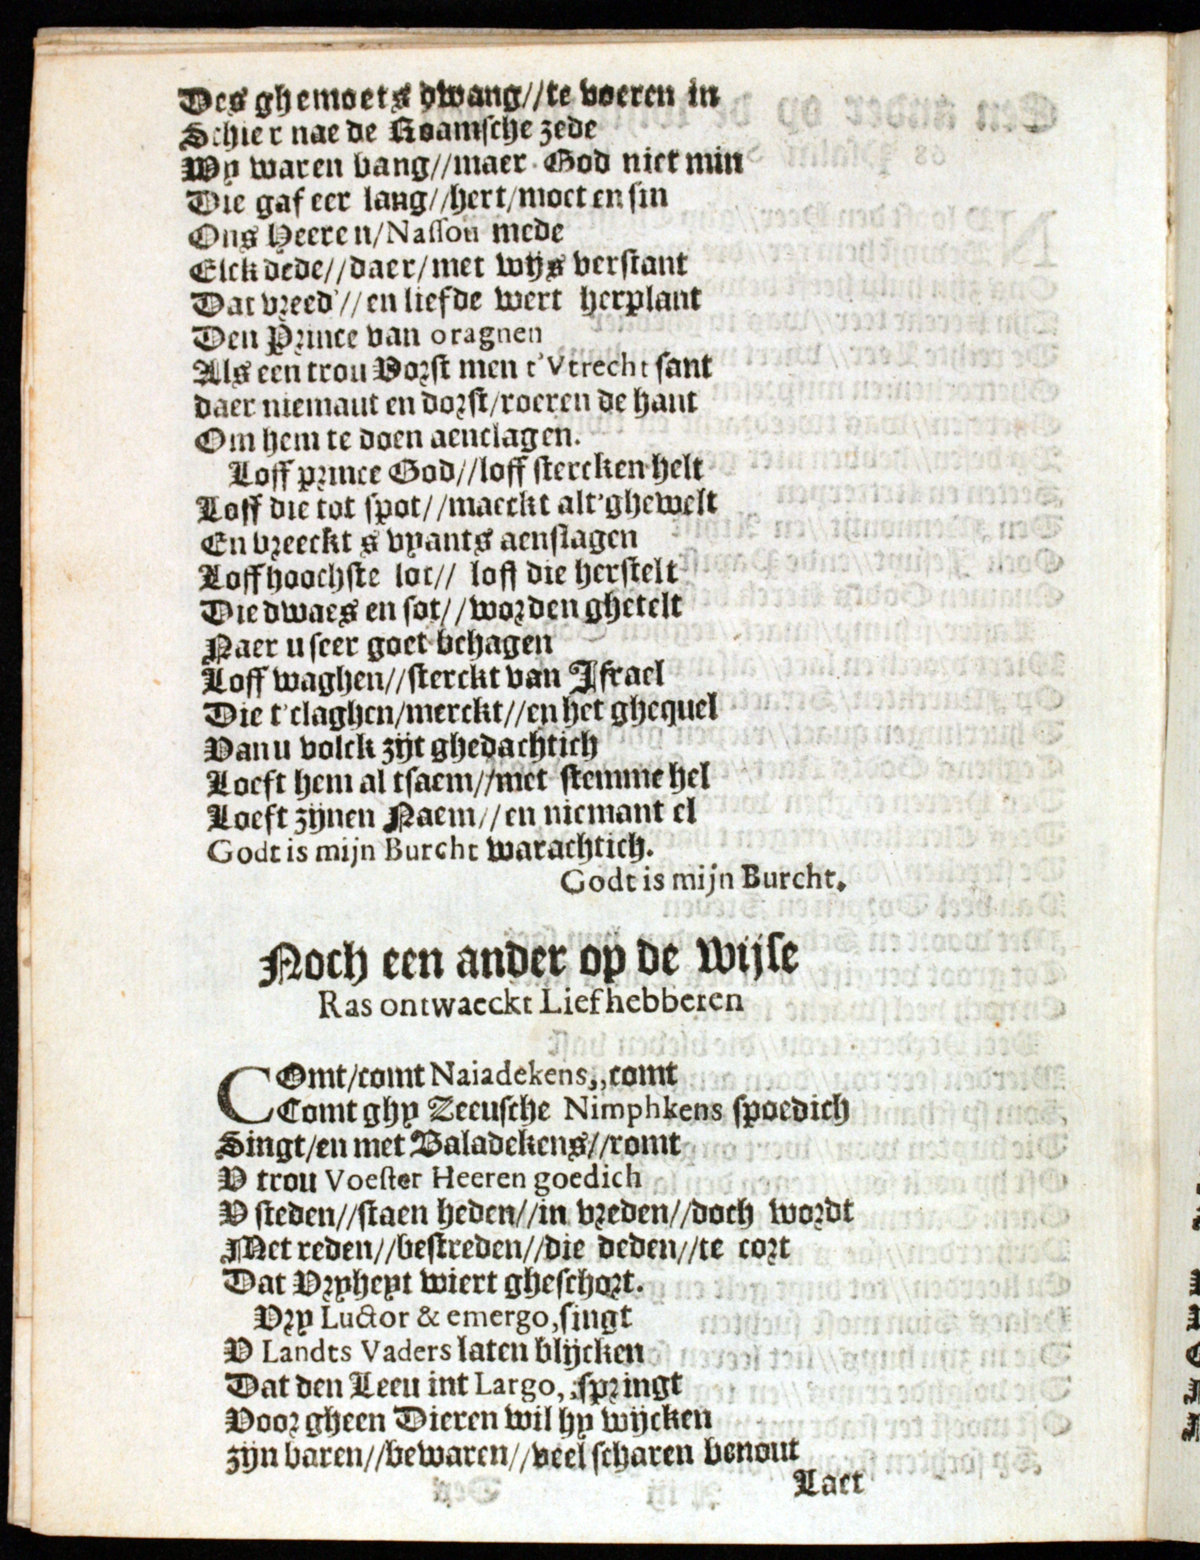 Des ghemoets dwang//te voeren in
Schier nae de Roamsche zede
Wy waren bang//maer God niet min
Die gaf eer lang//hert/moet en sin
Ons Heeren/Nassou mede
Elck dede//daer/met wijs verstant
Dat vreed'//en liefde wert herplant
Den Prince van oragnen
Als een trou Vorst men t'Vtrecht sant
daer niemaut en dorst/roeren de hant
Om hem te doen aenclagen.
Loff prince God//loff stercken helt
Loff die tot spot//maeckt alt'ghewelt
En vreeckt s vyants aenslagen
Loff hoochste lot// loff die herstelt
Die dwaes en sot//worden ghetelt
Naer u seer goet behagen
Loff waghen//sterckt van Israel
Die t'claghen/merckt//en het ghequel
Van u volck zijt ghedachtich
Loeft hem al tsaem//met stemme hel
Loeft zijnen Naem//en niemant el
Godt is mijn Burcht warachtich.
Godt is mijn Burcht.
Noch een ander op de wijse
Ras ontwaeckt Liefhebberen
COmt/comt Naiadekens,,comt
Comt ghy Zeeusche Nimphkens spoedich
Singt/en met Baladekens//romt
V trou Voester Heeren goedich
V steden//staen heden//in vreden//doch wordt
Met reden//bestreden//die deden//te cort
Dat Vryheyt wiert gheschort.
Vry Luctor & emergo,singt
V Landts Vaders laten blijcken
Dat den Leeu int Largo, springt
Voor gheen Dieren wil hy wijcken
zijn baren//bewaren//veel scharen benout
Laet